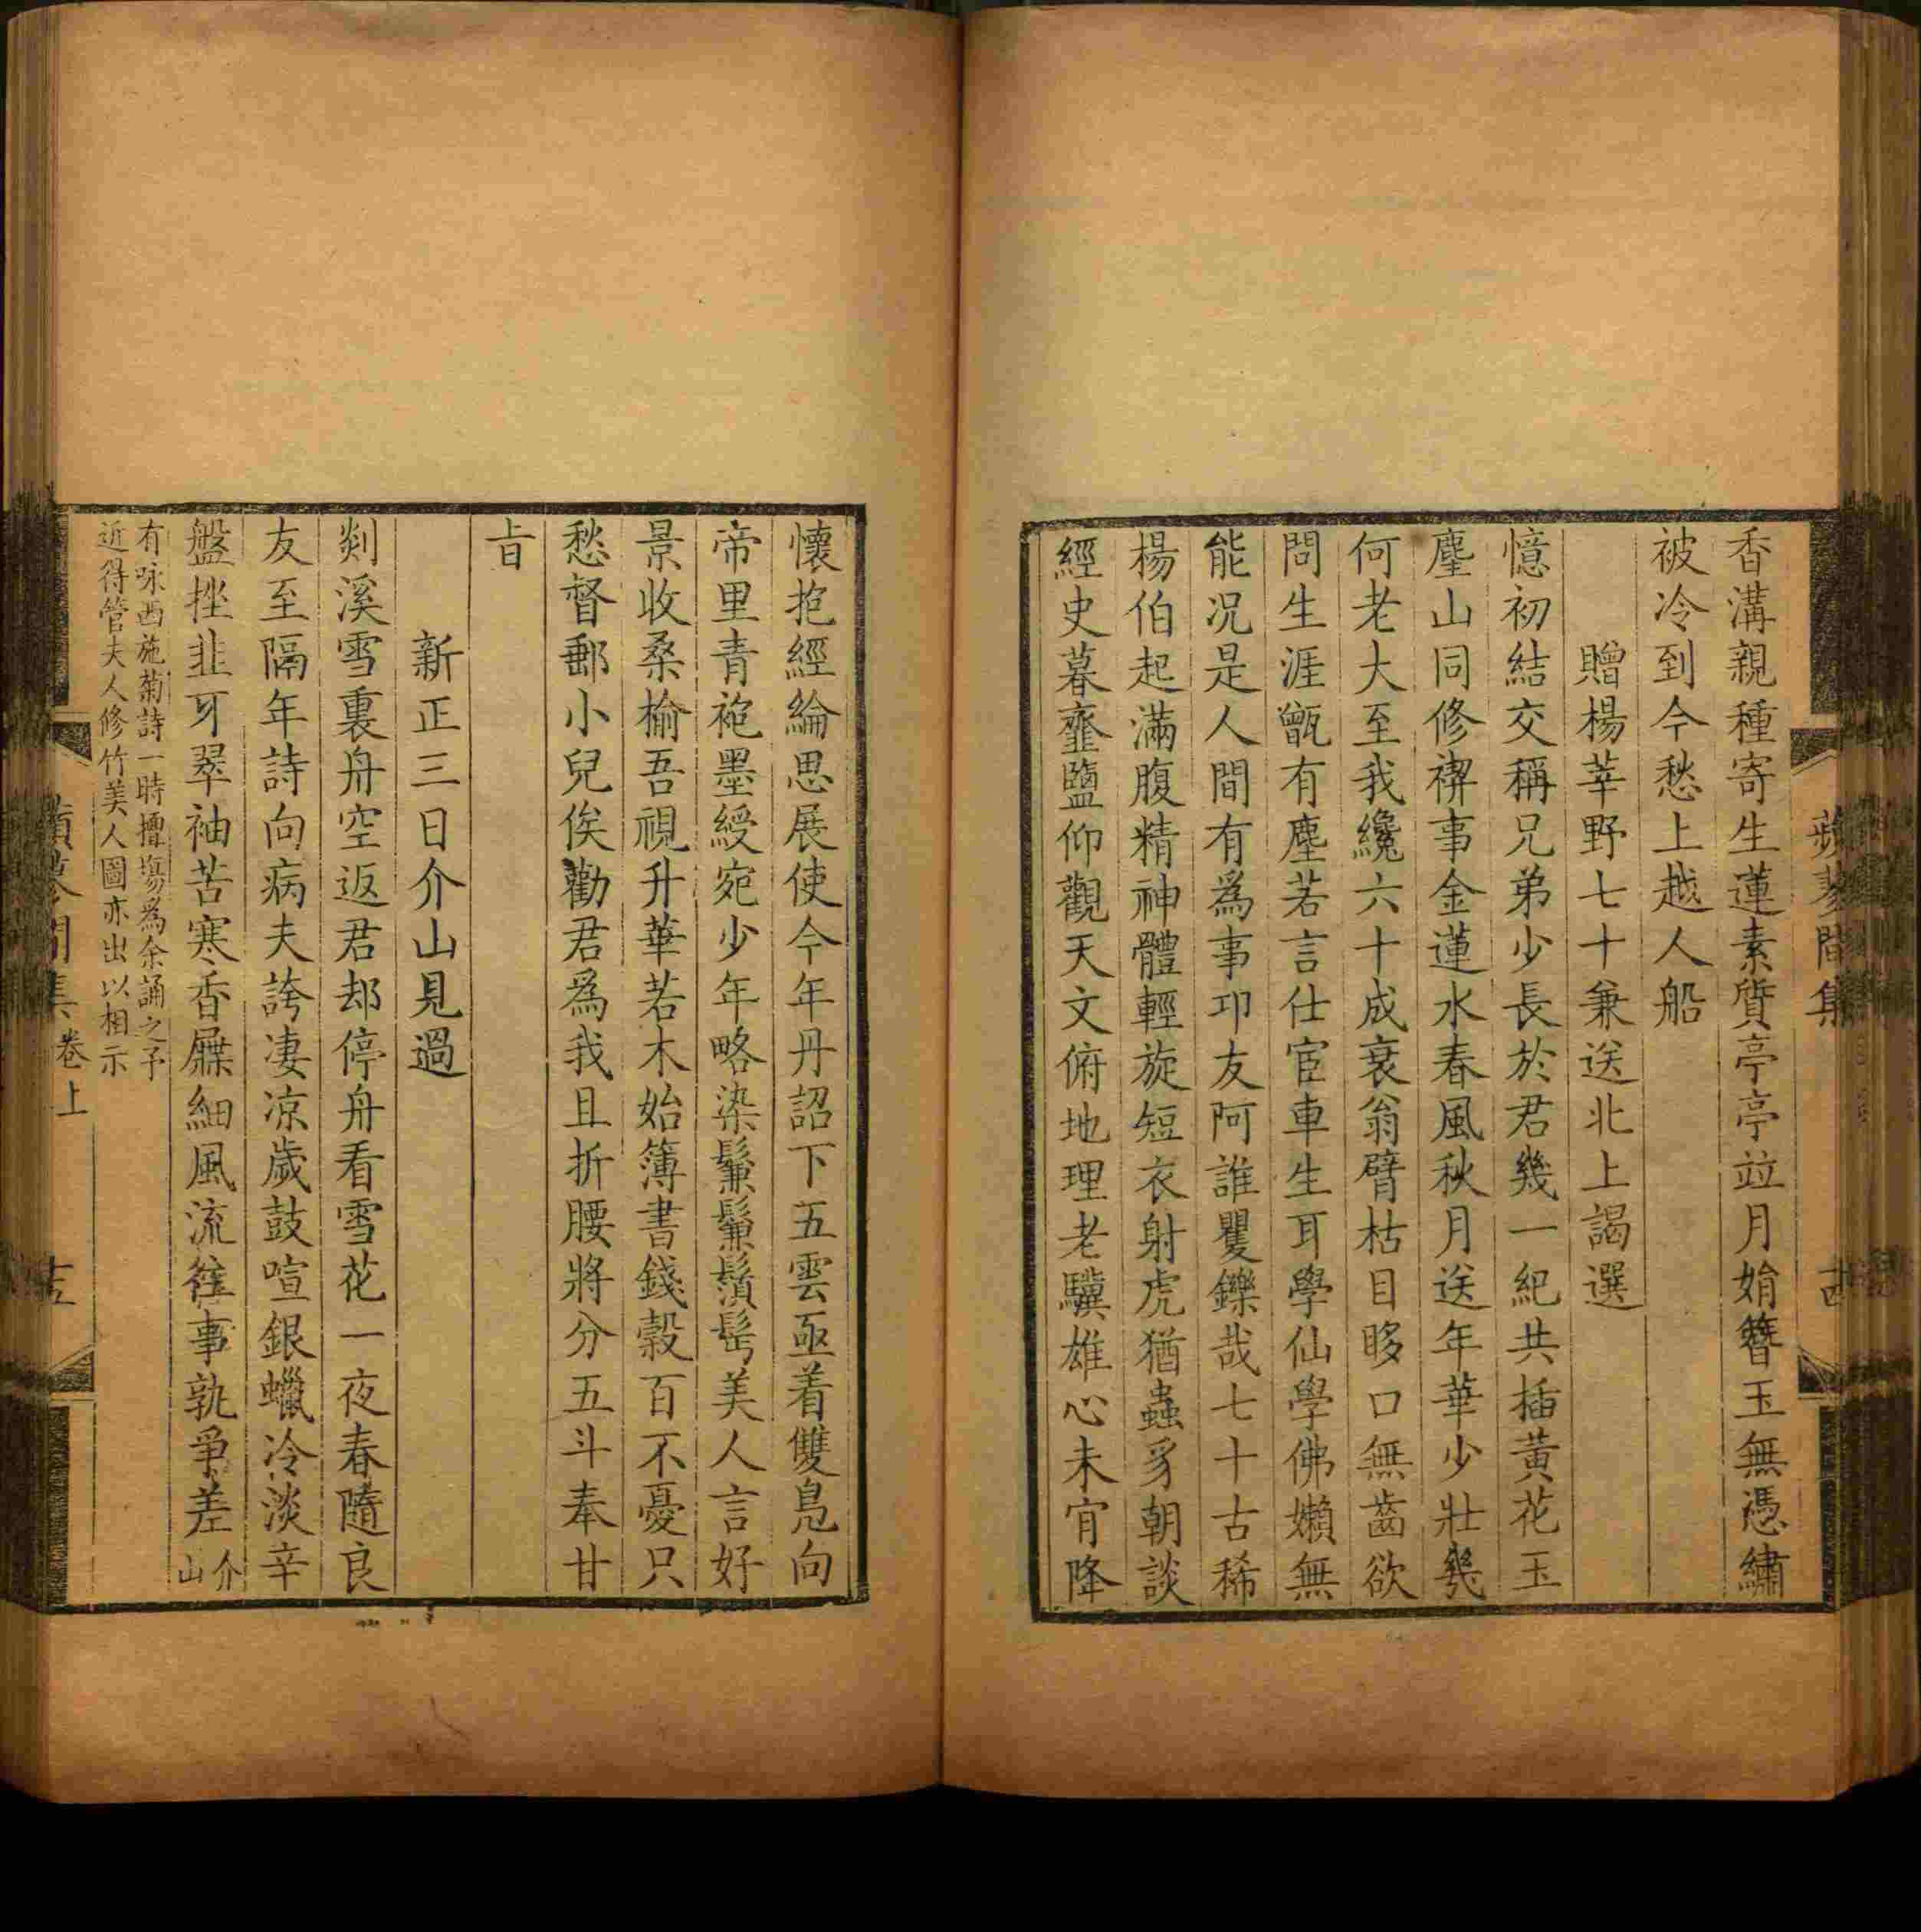 香溝親種寄生蓮素質亭亭竝月娟簪玉無憑繡
被冷到今愁上越人船
贈楊莘野七十兼送北上謁選
憶初結交稱兄弟少長於君幾一紀共插黃花玉
塵山同修禊事金蓮水春風秋月送年華少壯幾
何老大至我纔六十成衰翁臂枯目眵口無齒欲
問生涯甑有塵若言仕宦車生耳學仙學佛嬾無
能況是人間有爲事卭友阿誰矍鑠哉七十古稀
楊伯起滿腹精神體輕旋短衣射虎猶蟲豸朝談
經史暮虀鹽仰觀天文俯地理老驥雄心未肎降
懷抱經綸思展使今年丹詔下五雲亟着雙舄向
帝里青袍墨綬宛少年略染鬑鬑鬚髩美人言好
景收桑榆吾視升華若木始簿書錢穀百不憂只
愁督郵小兒俟勸君爲我且折腰將分五斗奉甘
旨
新正三日介山見過
剡溪雪裏舟空返君却停舟看雪花一夜春隨良
友至隔年詩向病夫誇凄凉歲鼓喧銀蠟冷淡辛
盤挫韭牙翠袖苦寒香屧細風流往事孰爭差介
山
有咏西施菊詩一時擅塲爲余誦之予
近得管夫人修竹美人圖亦出以相示
卷上